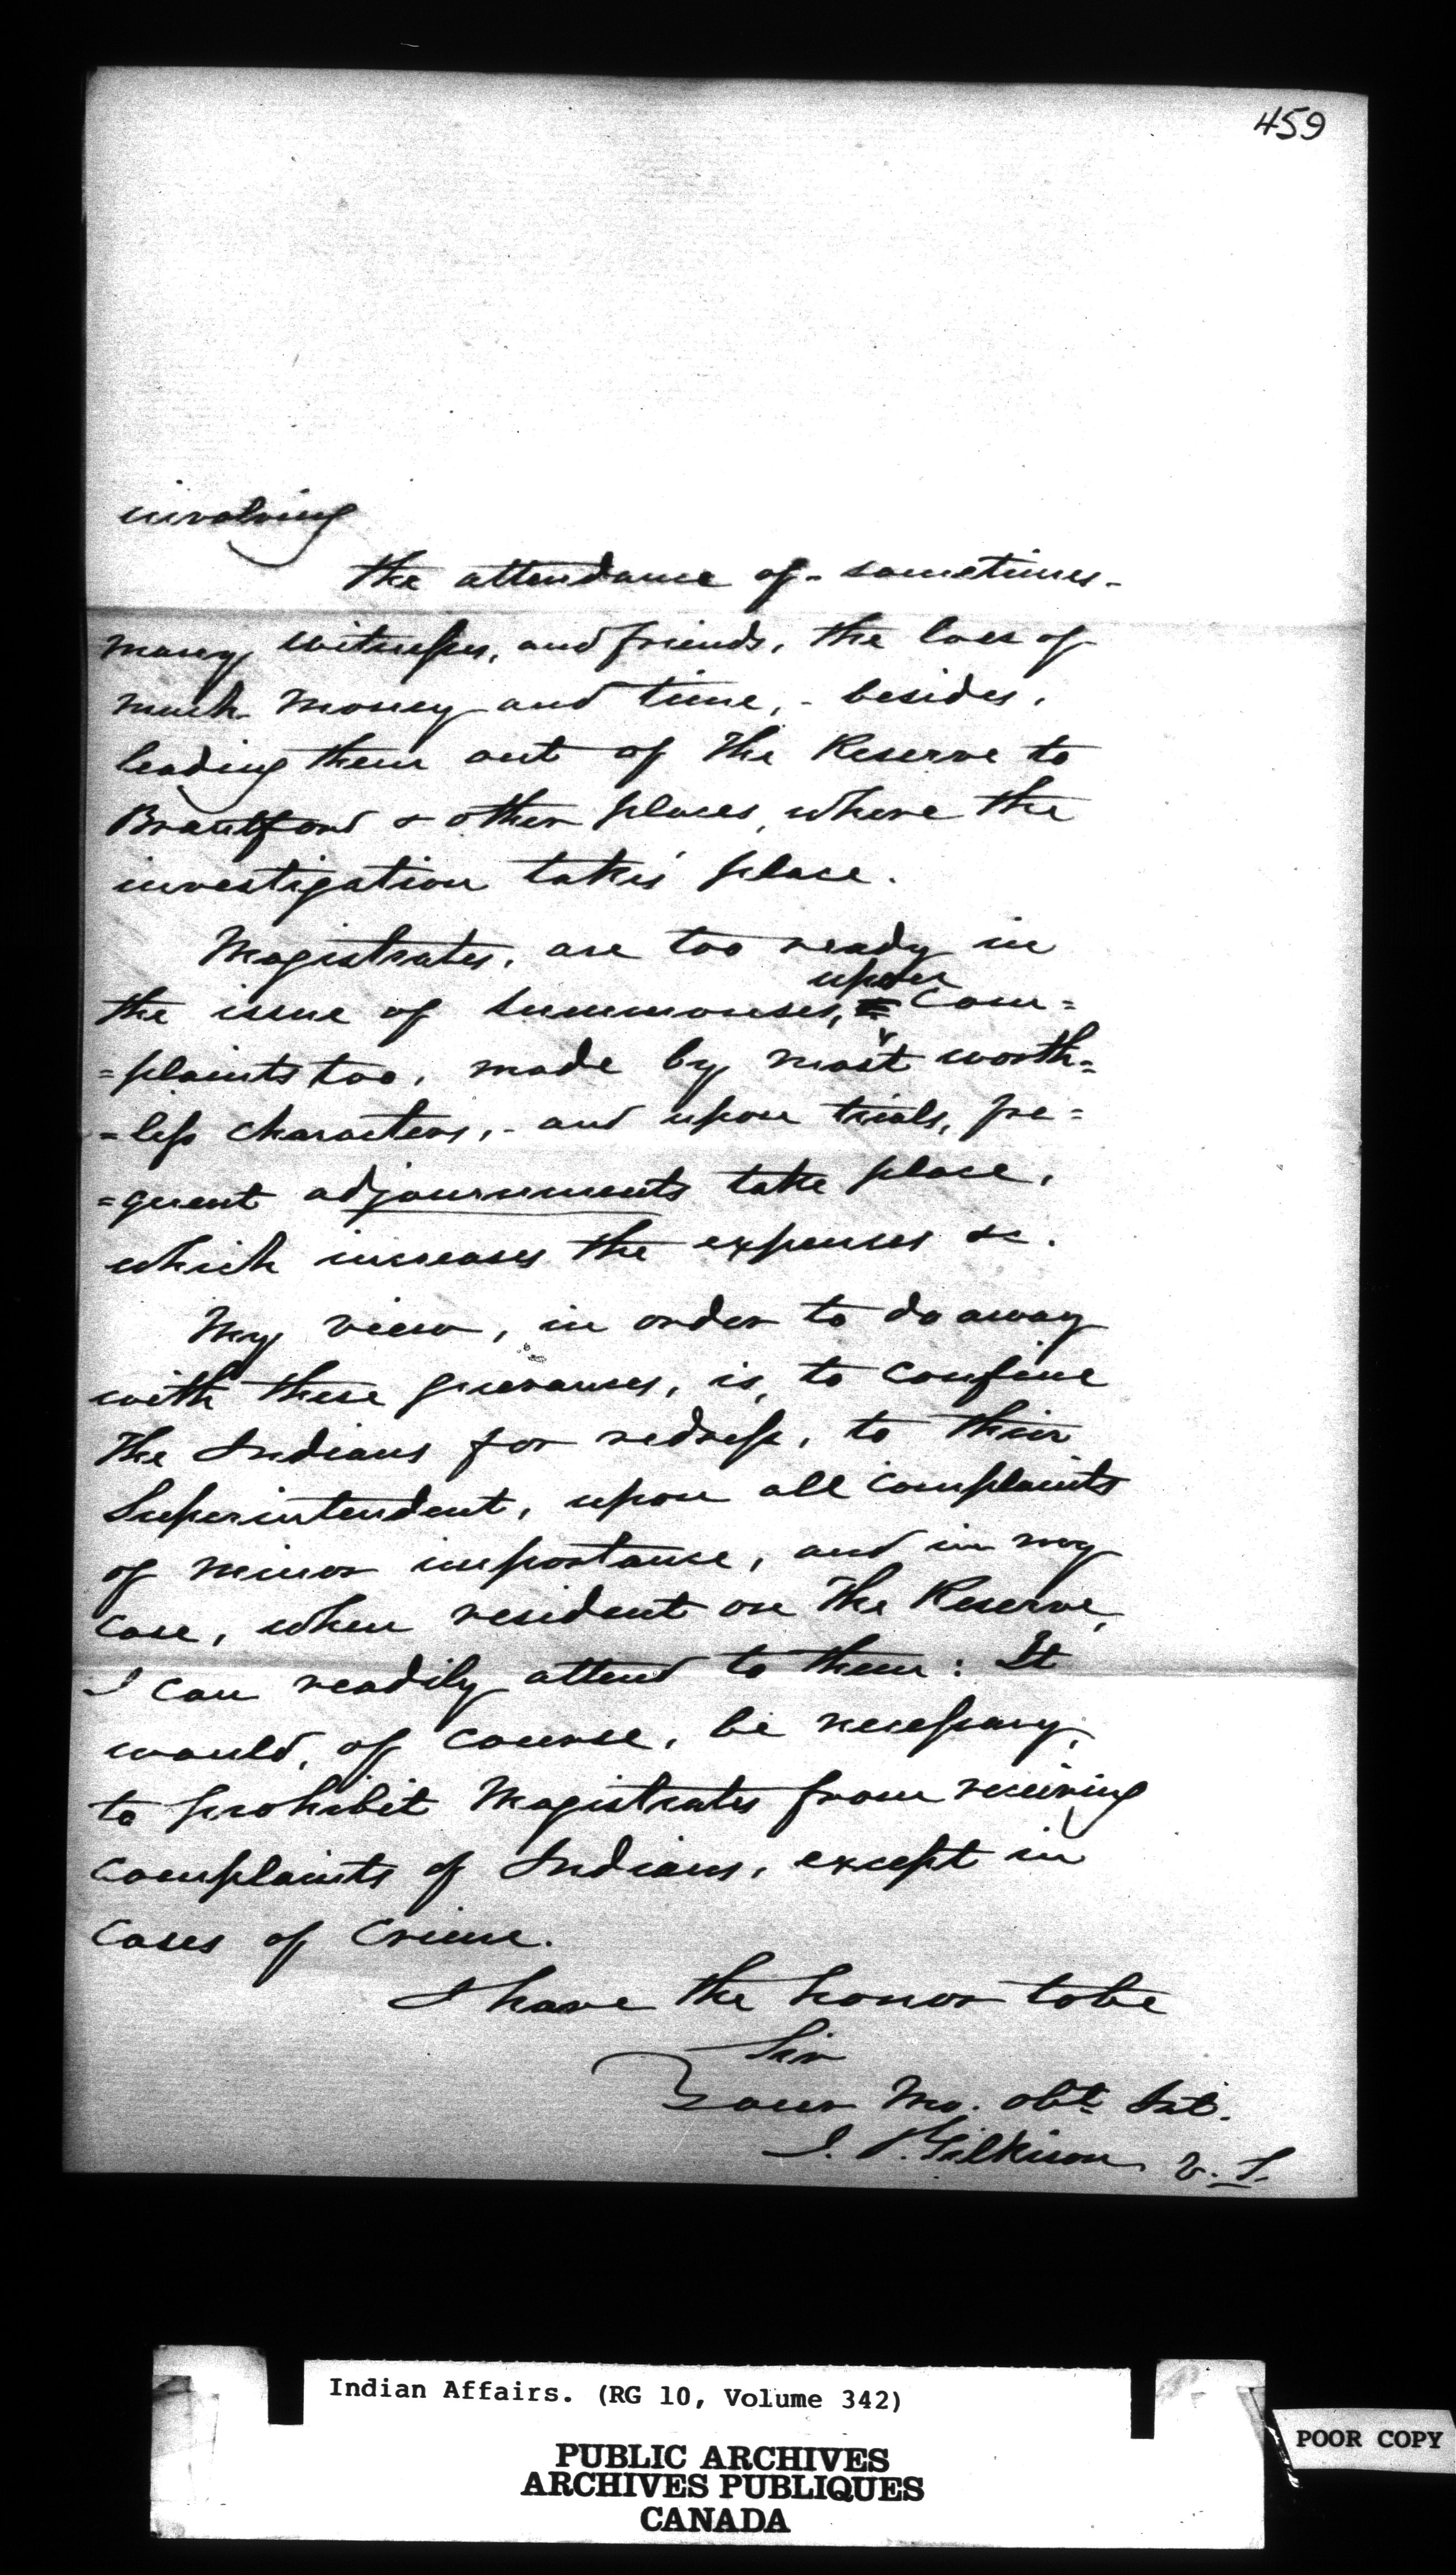 459
involving
the attendance of - sometimes -
many witnesses, and friends, the loss of
much money and time, - besides,
leading them out of The Reserve to
Brantford & other places, where the
investigation takes place.
Magistrates, are too ready in
upon
the issue of summonses, com=
=plaints too, made by most worth=
=less characters, - and upon trials, fre=
=quent adjournments take place,
which increases the expenses &c.
My view, in order to do away
with these grievances, is, to confine
The Indians for redress, to their
Superintendent, upon all complaints
of minor importance, and in my
case, when resident on The Reserve,
I can readily attend to them: It
would, of course, be necessary,
to prohibit Magistrates from receiving
complaints of Indians, except in
cases of crime.
I have the honor to be
Sir
Your Mo. obt. Svt.
J. T. Gilkison V. S.
Indian Affairs. (RG 10, Volume 342)
PUBLIC ARCHIVES
ARCHIVES PUBLIQUES
CANADA
POOR COPY